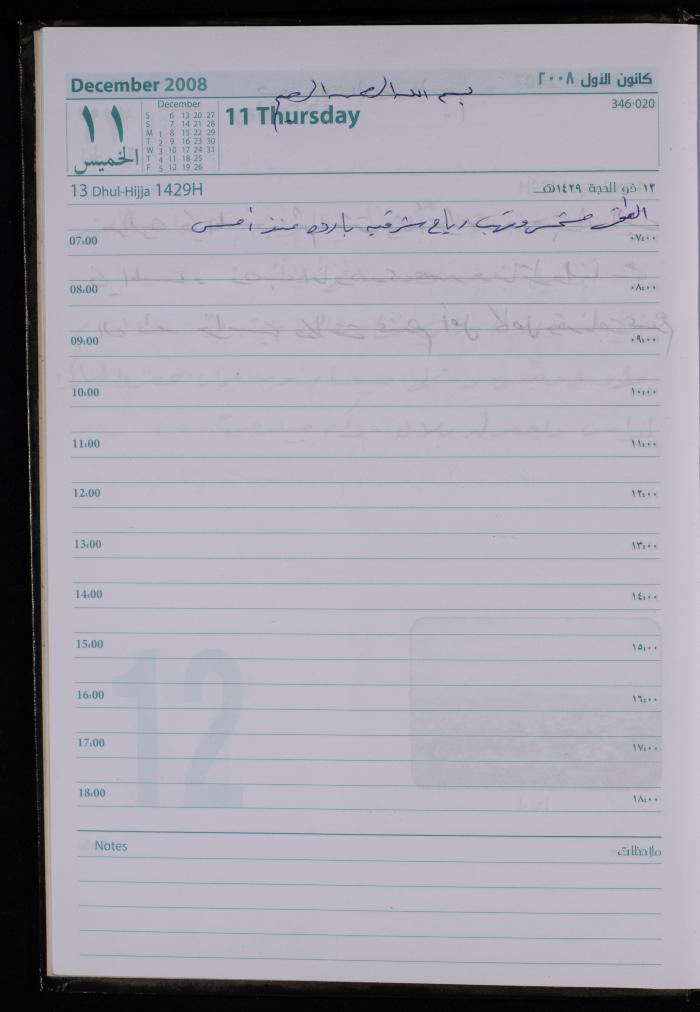 December 2008
كانون الأول ٢٠٠٨
بسم الله الرحمن الرحيم
١١
الخميس
December
S 6 13 20 27
S 7 14 21 28
M 1 8 15 22 29
T 2 9 16 23 30
W 3 10 17 24 31
T 4 11 18 25
F 5 12 19 26
11 Thursday
346-020
13 Dhul-Hijja 1429H
١٣ ذو الحجة ١٤٢٩هـ
الطقس مشمس وتهب رياح شرقيه بارده منذ أمس
07:00 ٠٧:٠٠
08:00 ٠٨:٠٠
09:00 ٠٩:٠٠
10:00 ١٠:٠٠
11:00 ١١:٠٠
12:00 ١٢:٠٠
13:00 ١٣:٠٠
14:00 ١٤:٠٠
15:00 ١٥:٠٠
16:00 ١٦:٠٠
17:00 ١٧:٠٠
18:00 ١٨:٠٠
12
Notes ملاحظات